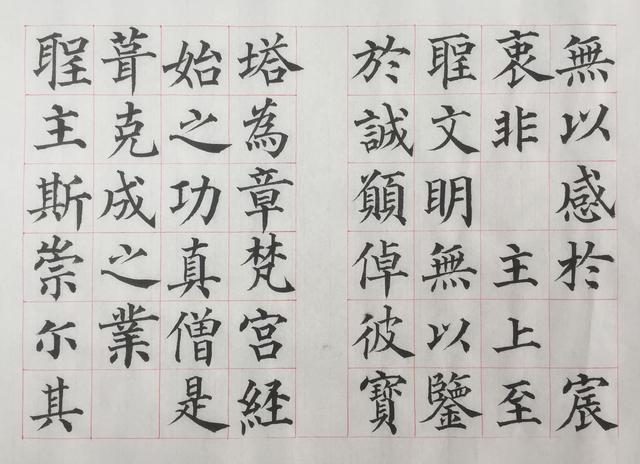 無以感於 宸
衷非 主上至
聖文明無以鑒
於誠願倬彼寶
塔為章梵宮経
始之功真僧是
葺克成之業
聖主斯崇尓其